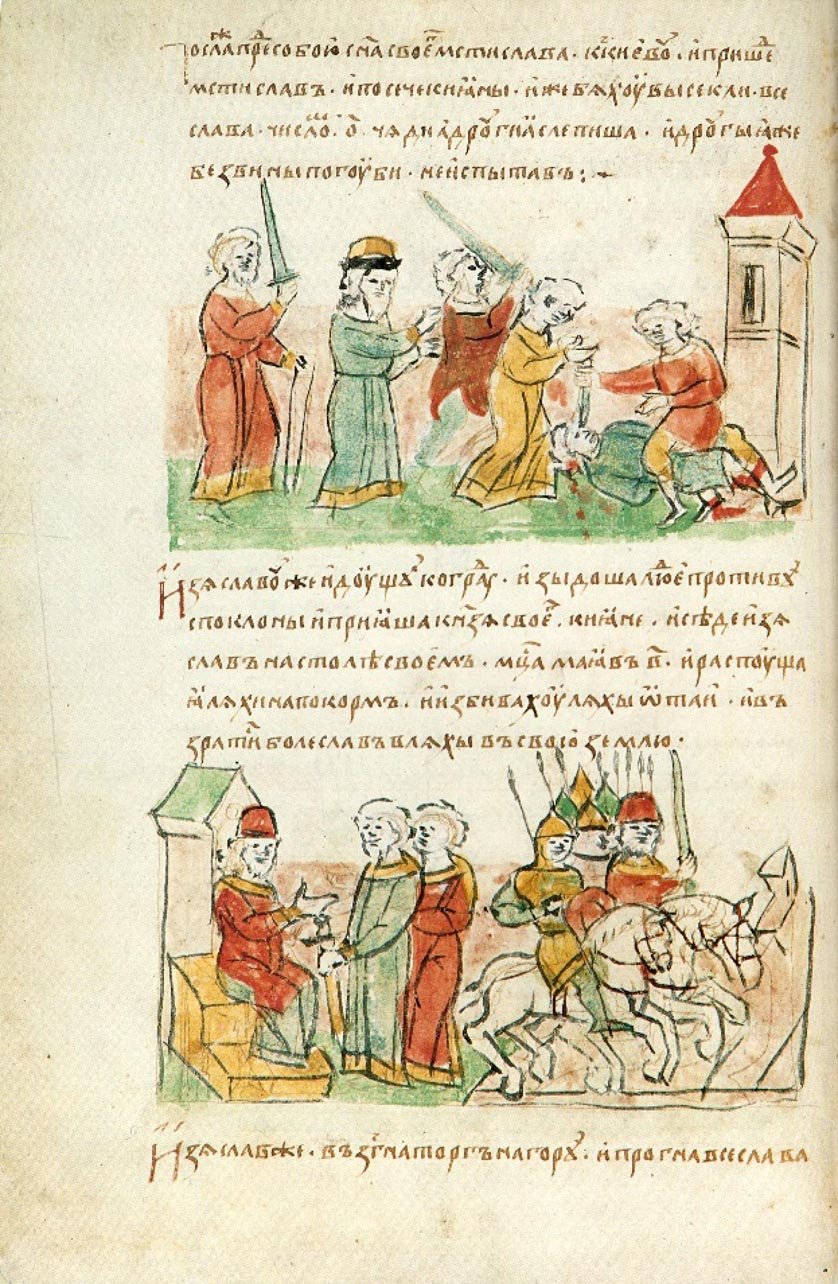 посла прⷣе собою сн҃а своеⷢ мстислава · к киевꙋ · и пришеⷣ
мстиславъ · и посече киꙗны · иже бѧхоу высекли · все
слава · числоⷨ · о҃ · чѧди а дрꙋгиꙗ слепиша · и дрꙋгыꙗ же
без вины погоуби · не испытавъ :·
Изѧславꙋ же идоущꙋ ко граⷣꙋ · и изыдоша люⷣе противꙋ
с поклоны и приꙗша кнѧзѧ своеⷢ · киꙗне · и сѣде изѧ
славъ на столѣ своемъ · мцⷭ҇а маꙗ въ в҃ · и распоуща
ꙗ лѧхи на покормъ · и избивахоу лѧхы ѿтаи · и въ
зратиⷭ болеславъ в лѧхы въ свою землю ·
Изѧслав же · възгна торгъ на горꙋ · и прогна всеслава